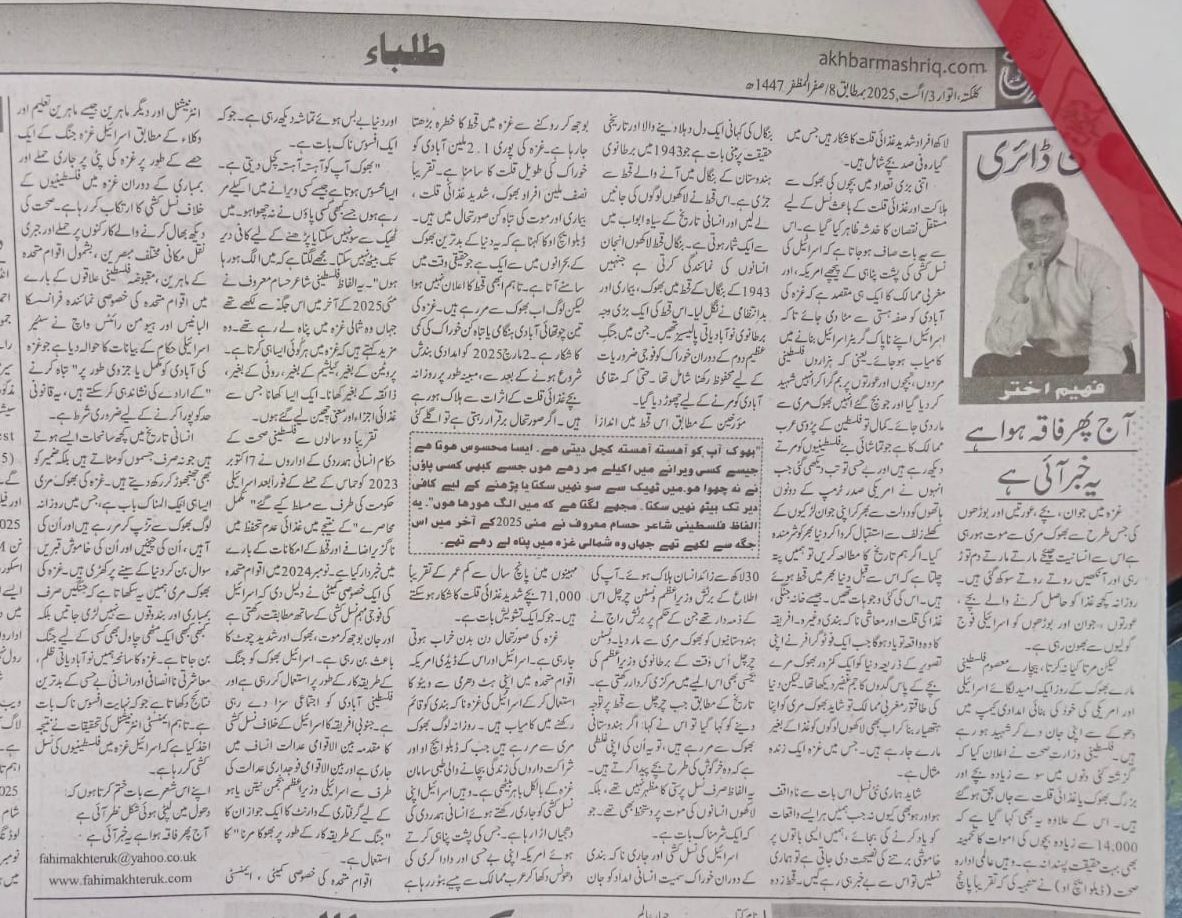 طلباء
akhbarmashriq.com
کلکتہ، اتوار 3/اگست، 2025 بمطابق 8/صفر المظفر 1447ھ
ڈائری
فہیم اختر
آج پھر فاقہ ہوا ہے
یہ خبر آئی ہے
غزہ میں جوان، بچے، عورتیں اور بوڑھوں
کی جس طرح سے بھوک مری سے موت ہورہی
ہے اس سے انسانیت چیختے مارتے مارتے دم توڑ
رہی اور آنکھیں روتے روتے سوکھ گئی ہیں۔
روزانہ کچھ غذا کو حاصل کرنے والے بچے
عورتوں، جوان اور بوڑھوں کو اسرائیلی فوج
گولیوں سے بھون رہی ہے۔
لیکن مرتا کیا نہ کرتا، بیچارے معصوم فلسطینی
مارے بھوک کے روز ایک امید لگائے اسرائیلی
اور امریکی کی خود کی بنائی امدادی کیمپ میں
دھوکے سے اپنی جان دے کر شہید ہو رہے
ہیں۔ فلسطینی وزارت صحت نے اعلان کیا کہ
گزشتہ کئی دنوں میں سو سے زیادہ بچے اور
بزرگ بھوک یا غذائی قلت سے جاں بحق ہوگئے
ہیں۔ اس کے علاوہ یہ بھی کہا گیا ہے کہ
14,000 سے زیادہ بچوں کی اموات کا تخمینہ
بھی بہت حقیقت پسندانہ ہے۔ وہیں عالمی ادارہ
صحت (ڈبلو ایچ او) نے تنبیہ کی کہ تقریباً پانچ
لاکھ افراد شدید غذائی قلت کا شکار ہیں جس میں
گیارہ فی صد بچے شامل ہیں۔
اتنی بڑی تعداد میں بچوں کی بھوک سے
ہلاکت اور غذائی قلت کے باعث نسل کے لیے
مستقل نقصان کا خدشہ ظاہر کیا گیا ہے۔ اس
سے یہ بات صاف ہو جاتا ہے کہ اسرائیل کی
نسل کشی کی پشت پناہی کے پیچھے امریکہ، اور
مغربی ممالک کا ایک ہی مقصد ہے کہ غزہ کی
آبادی کو صفہ ہستی سے مٹا دی جائے تا کہ
اسرائیل اپنے ناپاک گریٹر اسرائیل بنانے میں
کامیاب ہو جائے۔ یعنی کہ ہزاروں فلسطینی
مردوں، بچوں اور عورتوں پر بم گرا کر انہیں شہید
کر دیا گیا اور جو بچ گئے انہیں بھوک مری سے
ماردی جائے۔ کمال تو فلسطین کے پڑوسی عرب
ممالک کا ہے جو تماشائی بنے فلسطینیوں کو مرتے
دیکھ رہے ہیں اور بے بسی تو تب دیکھی گئی جب
انہوں نے امریکی صدر ٹرمپ کے دونوں
ہاتھوں کو دولت سے بھر کر اپنی جوان لڑکیوں کے
کھلے زلف سے استقبال کر وا کر دنیا بھر کو شرمندہ
کیا۔ اگر ہم تاریخ کا مطالعہ کریں تو ہمیں پتہ
چلتا ہے کہ اس سے قبل دنیا بھر میں قحط ہوئے
ہیں۔ اس کی کئی وجوہات تھیں۔ جیسے خانہ جنگی،
غذا کی قلت اور معاشی ناکہ بندی وغیرہ۔ افریقہ
کا وہ واقعہ تو یاد ہوگا جب ایک فوٹو گرافر نے اپنی
تصویر کے ذریعہ دنیا کو ایک کمزور بھوک مرے
بچے کے پاس گدوں کا جم غفیر دکھا یا تھا۔ لیکن دنیا
کی طاقتور مغربی ممالک تو شاید بھوک مری کو اپنا
ہتھیار بنا کر اب بھی لاکھوں لوگوں کو غذا کے بغیر
مارے جا رہے ہیں۔ جس میں غزہ ایک زندہ
مثال ہے۔
شاید ہماری نئی نسل اس بات سے ناواقف
ہو اور ہو بھی کیوں نہ جب ہمیں ہر ایسے واقعات
کو یاد کرنے کی بجائے، ہمیں ایسی باتوں پر
خاموشی برتنے کی نصیحت دی جاتی ہے تو ہماری
نسلیں تو اس سے بے خبر ہی رہے گیں۔ قحط زدہ
بنگال کی کہانی ایک دل دہلا دینے والا اور تاریخی
حقیقت پر مبنی بات ہے جو 1943 میں برطانوی
ہندوستان کے بنگال میں آنے والے قحط سے
جڑی ہے۔ اس قحط نے لاکھوں لوگوں کی جانیں
لے لیں اور انسانی تاریخ کے سیاہ ابواب میں
سے ایک شمار ہوتی ہے۔ بنگال قحط لاکھوں انجان
انسانوں کی نمائندگی کرتی ہے جنہیں
1943 کے بنگال کے قحط میں بھوک، بیماری اور
بد انتظامی نے نگل لیا۔ اس قحط کی ایک بڑی وجہ
برطانوی نوآبادیاتی پالیسیز تھیں۔ جن میں جنگ
عظیم دوم کے دوران خوراک کو فوجی ضروریات
کے لیے محفوظ رکھنا شامل تھا۔ حتیٰ کہ مقامی
آبادی کو مرنے کے لیے چھوڑ دیا گیا۔
مؤرخین کے مطابق اس قحط میں اندازاً
30 لاکھ سے زائد انسان ہلاک ہوئے۔ آپ کی
اطلاع کے برٹش وزیراعظم ونسٹن چرچل اس
کے ذمہ دار تھے جن کے حکم پر برٹش راج نے
ہندوستانیوں کو بھوک مری سے مار دیا۔ ونسٹن
چرچل اُس وقت کے برطانوی وزیراعظم کی
بے حسی بھی اس المیے میں مرکزی کردار رکھتی ہے۔
تاریخ کے مطابق جب چرچل سے قحط پر توجہ
دینے کو کہا گیا تو اس نے کہا: اگر ہندوستانی
بھوک سے مر رہے ہیں، تو یہ اُن کی اپنی غلطی
ہے کہ وہ خرگوش کی طرح بچے پیدا کرتے ہیں۔
یہ الفاظ صرف نسل پرستی کا مظہر نہیں تھے، بلکہ
لاکھوں انسانوں کی موت پر دستخط بھی تھے۔ جو
کہ ایک شرمناک بات ہے۔
اسرائیل کی نسل کشی اور جاری ناکہ بندی
کے دوران خوراک سمیت انسانی امداد کو جان
بوجھ کر روکنے سے غزہ میں قحط کا خطرہ بڑھتا
جا رہا ہے۔ غزہ کی پوری 2.1 ملین آبادی کو
خوراک کی طویل قلت کا سامنا ہے۔ تقریباً
نصف ملین افراد بھوک، شدید غذائی قلت،
بیماری اور موت کی تباہ کن صورتحال میں ہیں۔
ڈبلو ایچ او کا کہنا ہے کہ یہ دنیا کے بدترین بھوک
کے بحرانوں میں سے ایک ہے جو حقیقی وقت میں
سامنے آتا ہے۔ تاہم ابھی قحط کا اعلان نہیں ہوا
لیکن لوگ اب بھوک سے مر رہے ہیں۔ غزہ کی
تین چوتھائی آبادی ہنگامی یا تباہ کن خوراک کی کمی
کا شکار ہے۔ 2 مارچ 2025 کو امدادی بندش
شروع ہونے کے بعد سے، مبینہ طور پر روزانہ
بچے غذائی قلت کے اثرات سے ہلاک ہو رہے
ہیں۔ اگر صورتحال برقرار رہتی ہے تو اگلے کئی
"بھوک آپ کو آہستہ آہستہ کچل دیتی ہے۔ ایسا محسوس ہوتا ہے
جیسے کسی ویرانے میں اکیلے مر رہے ہوں جسے کبھی کسی پاؤں
نے نہ چھوا ہو۔ میں ٹھیک سے سو نہیں سکتا یا پڑھنے کے لیے کافی
دیر تک بیٹھ نہیں سکتا۔ مجھے لگتا ہے کہ میں الگ ہو رہا ہوں"۔ یہ
الفاظ فلسطینی شاعر حسام معروف نے مئی 2025 کے آخر میں اس
جگہ سے لکھے تھے جہاں وہ شمالی غزہ میں پناہ لے رہے تھے۔
مہینوں میں پانچ سال سے کم عمر کے تقریباً
71,000 بچے شدید غذائی قلت کا شکار ہو سکتے
ہیں۔ جو کہ ایک تشویش بات ہے۔
غزہ کی صورتحال دن بدن خراب ہوتی
جارہی ہے۔ اسرائیل اور اس کے ڈیڈی امریکہ
اقوام متحدہ میں اپنی ہٹ دھرمی سے ویٹو کا
استعمال کر کے اسرائیل کی غزہ ناکہ بندی کو قائم
رکھنے میں کامیاب ہیں۔ روزانہ لوگ بھوک
مری سے مر رہے ہیں جب کہ ڈبلو ایچ او اور
شراکت داروں کی زندگی بچانے والی طبی سامان
غزہ کے بالکل باہر بیٹھی ہے۔ وہیں اسرائیل اپنی
نسل کشی کو جاری رکھتے ہوئے انسانی ہمدردی کی
دھجیاں اڑا رہا ہے۔ جس کی پشت پناہی کرتے
ہوئے امریکہ اپنی بے حسی اور دادا گری کی
دھونس دکھا کر عرب ممالک سے پیسے بٹور رہا ہے
اور دنیا بے بس ہوئے تماشہ دیکھ رہی ہے۔ جو کہ
ایک افسوس ناک بات ہے۔
"بھوک آپ کو آہستہ آہستہ کچل دیتی ہے۔
ایسا محسوس ہوتا ہے جیسے کسی ویرانے میں اکیلے مر
رہے ہوں جسے کبھی کسی پاؤں نے نہ چھوا ہو۔ میں
ٹھیک سے سو نہیں سکتا یا پڑھنے کے لیے کافی دیر
تک بیٹھ نہیں سکتا۔ مجھے لگتا ہے کہ میں الگ ہو رہا
ہوں"۔ یہ الفاظ فلسطینی شاعر حسام معروف نے
مئی 2025 کے آخر میں اس جگہ سے لکھے تھے
جہاں وہ شمالی غزہ میں پناہ لے رہے تھے۔ وہ
مزید کہتے ہیں کہ غزہ میں ہر کوئی ایسا ہی کرتا ہے۔
پروٹین کے بغیر، کیلشیم کے بغیر، روٹی کے بغیر،
ذائقہ کے بغیر کھانا۔ ایک ایسا کھانا جس سے
غذائی اجزاء اور معنی چھین لیے گئے ہوں۔
تقریباً دو سالوں سے فلسطینی صحت کے
حکام انسانی ہمدردی کے اداروں نے 7 اکتوبر
2023 کو حماس کے حملے کے فوراً بعد اسرائیلی
حکومت کی طرف سے مسلط کیے گئے "مکمل
محاصرے" کے نتیجے میں غذائی عدم تحفظ میں
ناگزیر اضافے اور قحط کے امکانات کے بارے
میں خبردار کیا ہے۔ نومبر 2024 میں اقوام متحدہ
کی ایک خصوصی کمیٹی نے دلیل دی کہ اسرائیل
کی فوجی مہم نسل کشی کے ساتھ مطابقت رکھتی ہے
اور جان بوجھ کر موت، بھوک اور شدید چوٹ کا
باعث بن رہی ہے۔ اسرائیل بھوک کو جنگ
کے طریقہ کار کے طور پر استعمال کر رہی ہے اور
فلسطینی آبادی کو اجتماعی سزا دے رہی
ہے۔ جنوبی افریقہ کا اسرائیل کے خلاف نسل کشی
کا مقدمہ بین الاقوامی عدالت انصاف میں
جاری ہے اور بین الاقوامی فوجداری عدالت کی
طرف سے اسرائیلی وزیراعظم بنجمن نیتن یاہو
کے لیے گرفتاری کے وارنٹ کا ایک جواز ان کا
"جنگ کے طریقہ کار کے طور پر بھوکا مرنا" کا
استعمال ہے۔
اقوام متحدہ کی خصوصی کمیٹی، ایمنسٹی
انٹرنیشنل اور دیگر ماہرین جیسے ماہرین تعلیم اور
وکلاء کے مطابق اسرائیل غزہ جنگ کے ایک
حصے کے طور پر غزہ کی پٹی پر جاری حملے اور
بمباری کے دوران غزہ میں فلسطینیوں کے
خلاف نسل کشی کا ارتکاب کر رہا ہے۔ صحت کی
دیکھ بھال کرنے والے کارکنوں پر حملے اور جبری
نقل مکانی مختلف مبصرین، بشمول اقوام متحدہ
کے ماہرین، مقبوضہ فلسطینی علاقوں کے بارے
میں اقوام متحدہ کی خصوصی نمائندہ فرانسسکا
البانیس اور ہیومن رائٹس واچ نے سنئیر
اسرائیلی حکام کے بیانات کا حوالہ دیا ہے جو غزہ
کی آبادی کو مکمل یا جزوی طور پر "تباہ کرنے
"کے ارادے کی نشاندہی کر سکتے ہیں، یہ قانونی
حد کو پورا کرنے کے لیے ضروری شرط ہے۔
انسانی تاریخ میں کچھ سانحات ایسے ہوتے
ہیں جو نہ صرف جسموں کو مٹاتے ہیں بلکہ ضمیر کو
بھی جھنجھوڑ کر رکھ دیتے ہیں۔ غزہ کی بھوک مری
ایسا ہی ایک المناک باب ہے، جس میں روزانہ
لوگ بھوک سے تڑپ کر مر رہے ہیں اور اُن کی
آہیں، اُن کی چیخیں اور اُن کی خاموش قبریں
سوال بن کر دنیا کے سینے پر کھڑی ہیں۔ غزہ کی
بھوک مری ہمیں یہ سکھاتا ہے کہ جنگیں صرف
بمباری اور بندوقوں سے نہیں لڑی جاتیں بلکہ
کبھی کبھی ایک مٹھی چاول بھی کسی کے لیے جنگ
بن جاتا ہے۔ غزہ کا سانحہ ہمیں نوآبادیاتی ظلم،
معاشرتی ناانصافی اور انسانی بے حسی کے بدترین
نتائج دکھاتا ہے جو کہ نہایت افسوس ناک بات
ہے۔ تاہم ایمنسٹی انٹرنیشنل کی تحقیقات نے نتیجہ
اخذ کیا ہے کہ اسرائیل غزہ میں فلسطینیوں کی نسل
کشی کر رہا ہے۔
اپنے اس شعر سے بات ختم کرتا ہوں کہ:
دھول میں لپٹی ہوئی شکل نظر آئی ہے
آج پھر فاقہ ہوا ہے یہ خبر آئی ہے
fahimakhteruk@yahoo.co.uk
www.fahimakhteruk.com